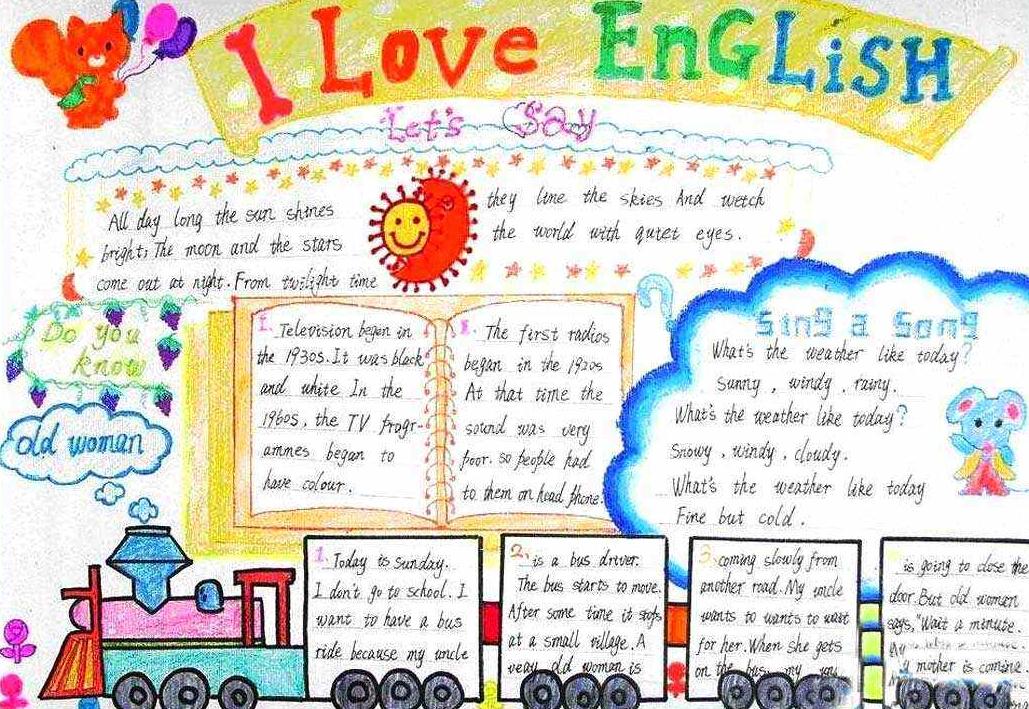 I Love EnGLiSH
Let's Say
All day long the sun shines
bright; The moon and the stars
come out at night. From twilight time
they line the skies And wetch
the world with qutet eyes.
Do you
know
old woman
1. Television began in
the 1930s. It was black
and white In the
1960s, the TV Progr-
ammes began to
have colour.
The first radios
began in the 1920s
At that time the
sound was very
poor. so people had
to them on head phone.
Sing a Song
What's the weather like today?
Sunny, windy, rainy.
What's the weather like today?
Snowy, windy, cloudy.
What's the weather like today
Fine but cold.
1. Today is sunday.
I don't go to school. I
want to have a bus
ride because my uncle
2. is a bus driver.
The bus starts to move.
After some time it stops
at a small village. A
veay old woman is
3. coming slowly from
another road. My uncle
wants to wants to wait
for her. When she gets
on the bus my
is going to close the
door. But old woman
says, "Wait a minute.
My
mother is comine.